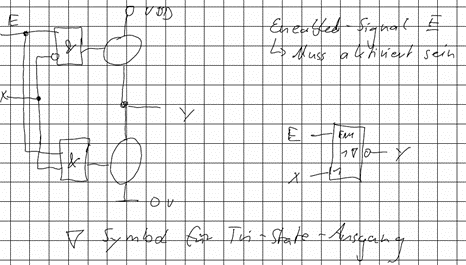 E
VDD
&
X
Y
&
0V
Enabled-Signal E
↳ Muss aktiviert sein
E
EN
1 ▽
Y
X
1
▽ Symbol für Tri-State-Ausgang